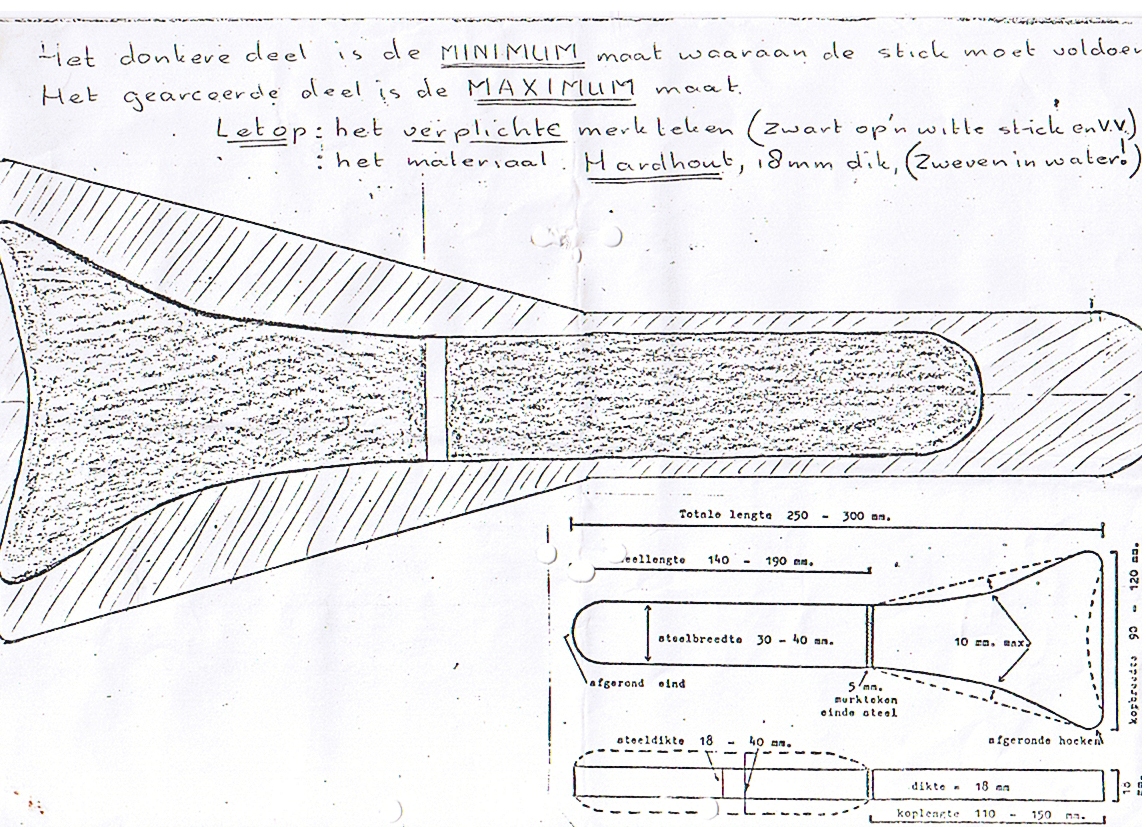 Het donkere deel is de MINIMUM maat waaraan de stick moet voldoen
Het gearceerde deel is de MAXIMUM maat.
Letop: het verplichte merkteken (zwart op'n witte stick en V.V.)
: het materiaal Hardhout, 18mm dik, (Zweven in water!)
Totale lengte 250 - 300 mm.
eellengte 140 - 190 mm.
steelbreedte 30 - 40 mm.
10 mm. max.
kopbreedte 90 - 120 mm.
afgerond eind
5 mm.
merkteken
einde steel
afgeronde hoeken
steeldikte 18 - 40 mm.
dikte = 18 mm
koplengte 110 - 150 mm.